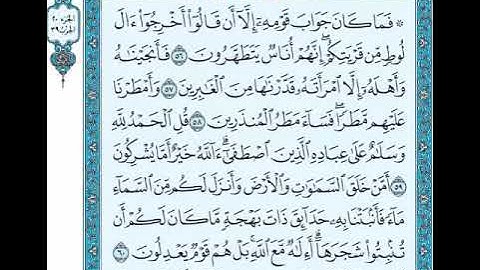 الجزء ٢٠
الحزب ٣٩
۞ فَمَا كَانَ جَوَابَ قَوْمِهِۦٓ إِلَّآ أَن قَالُوٓا۟ أَخْرِجُوٓا۟ ءَالَ
لُوطٍ مِّن قَرْيَتِكُمْ ۖ إِنَّهُمْ أُنَاسٌ يَتَطَهَّرُونَ ٥٦ فَأَنجَيْنَـٰهُ
وَأَهْلَهُۥٓ إِلَّا ٱمْرَأَتَهُۥ قَدَّرْنَـٰهَا مِنَ ٱلْغَـٰبِرِينَ ٥٧ وَأَمْطَرْنَا
عَلَيْهِم مَّطَرًا ۖ فَسَآءَ مَطَرُ ٱلْمُنذَرِينَ ٥٨ قُلِ ٱلْحَمْدُ لِلَّهِ
وَسَلَـٰمٌ عَلَىٰ عِبَادِهِ ٱلَّذِينَ ٱصْطَفَىٰٓ ۗ ءَآللَّهُ خَيْرٌ أَمَّا يُشْرِكُونَ
٥٩ أَمَّنْ خَلَقَ ٱلسَّمَـٰوَٰتِ وَٱلْأَرْضَ وَأَنزَلَ لَكُم مِّنَ ٱلسَّمَآءِ
مَآءً فَأَنۢبَتْنَا بِهِۦ حَدَآئِقَ ذَاتَ بَهْجَةٍ مَّا كَانَ لَكُمْ أَن
تُنۢبِتُوا۟ شَجَرَهَآ ۗ أَءِلَـٰهٌ مَّعَ ٱللَّهِ ۚ بَلْ هُمْ قَوْمٌ يَعْدِلُونَ ٦٠